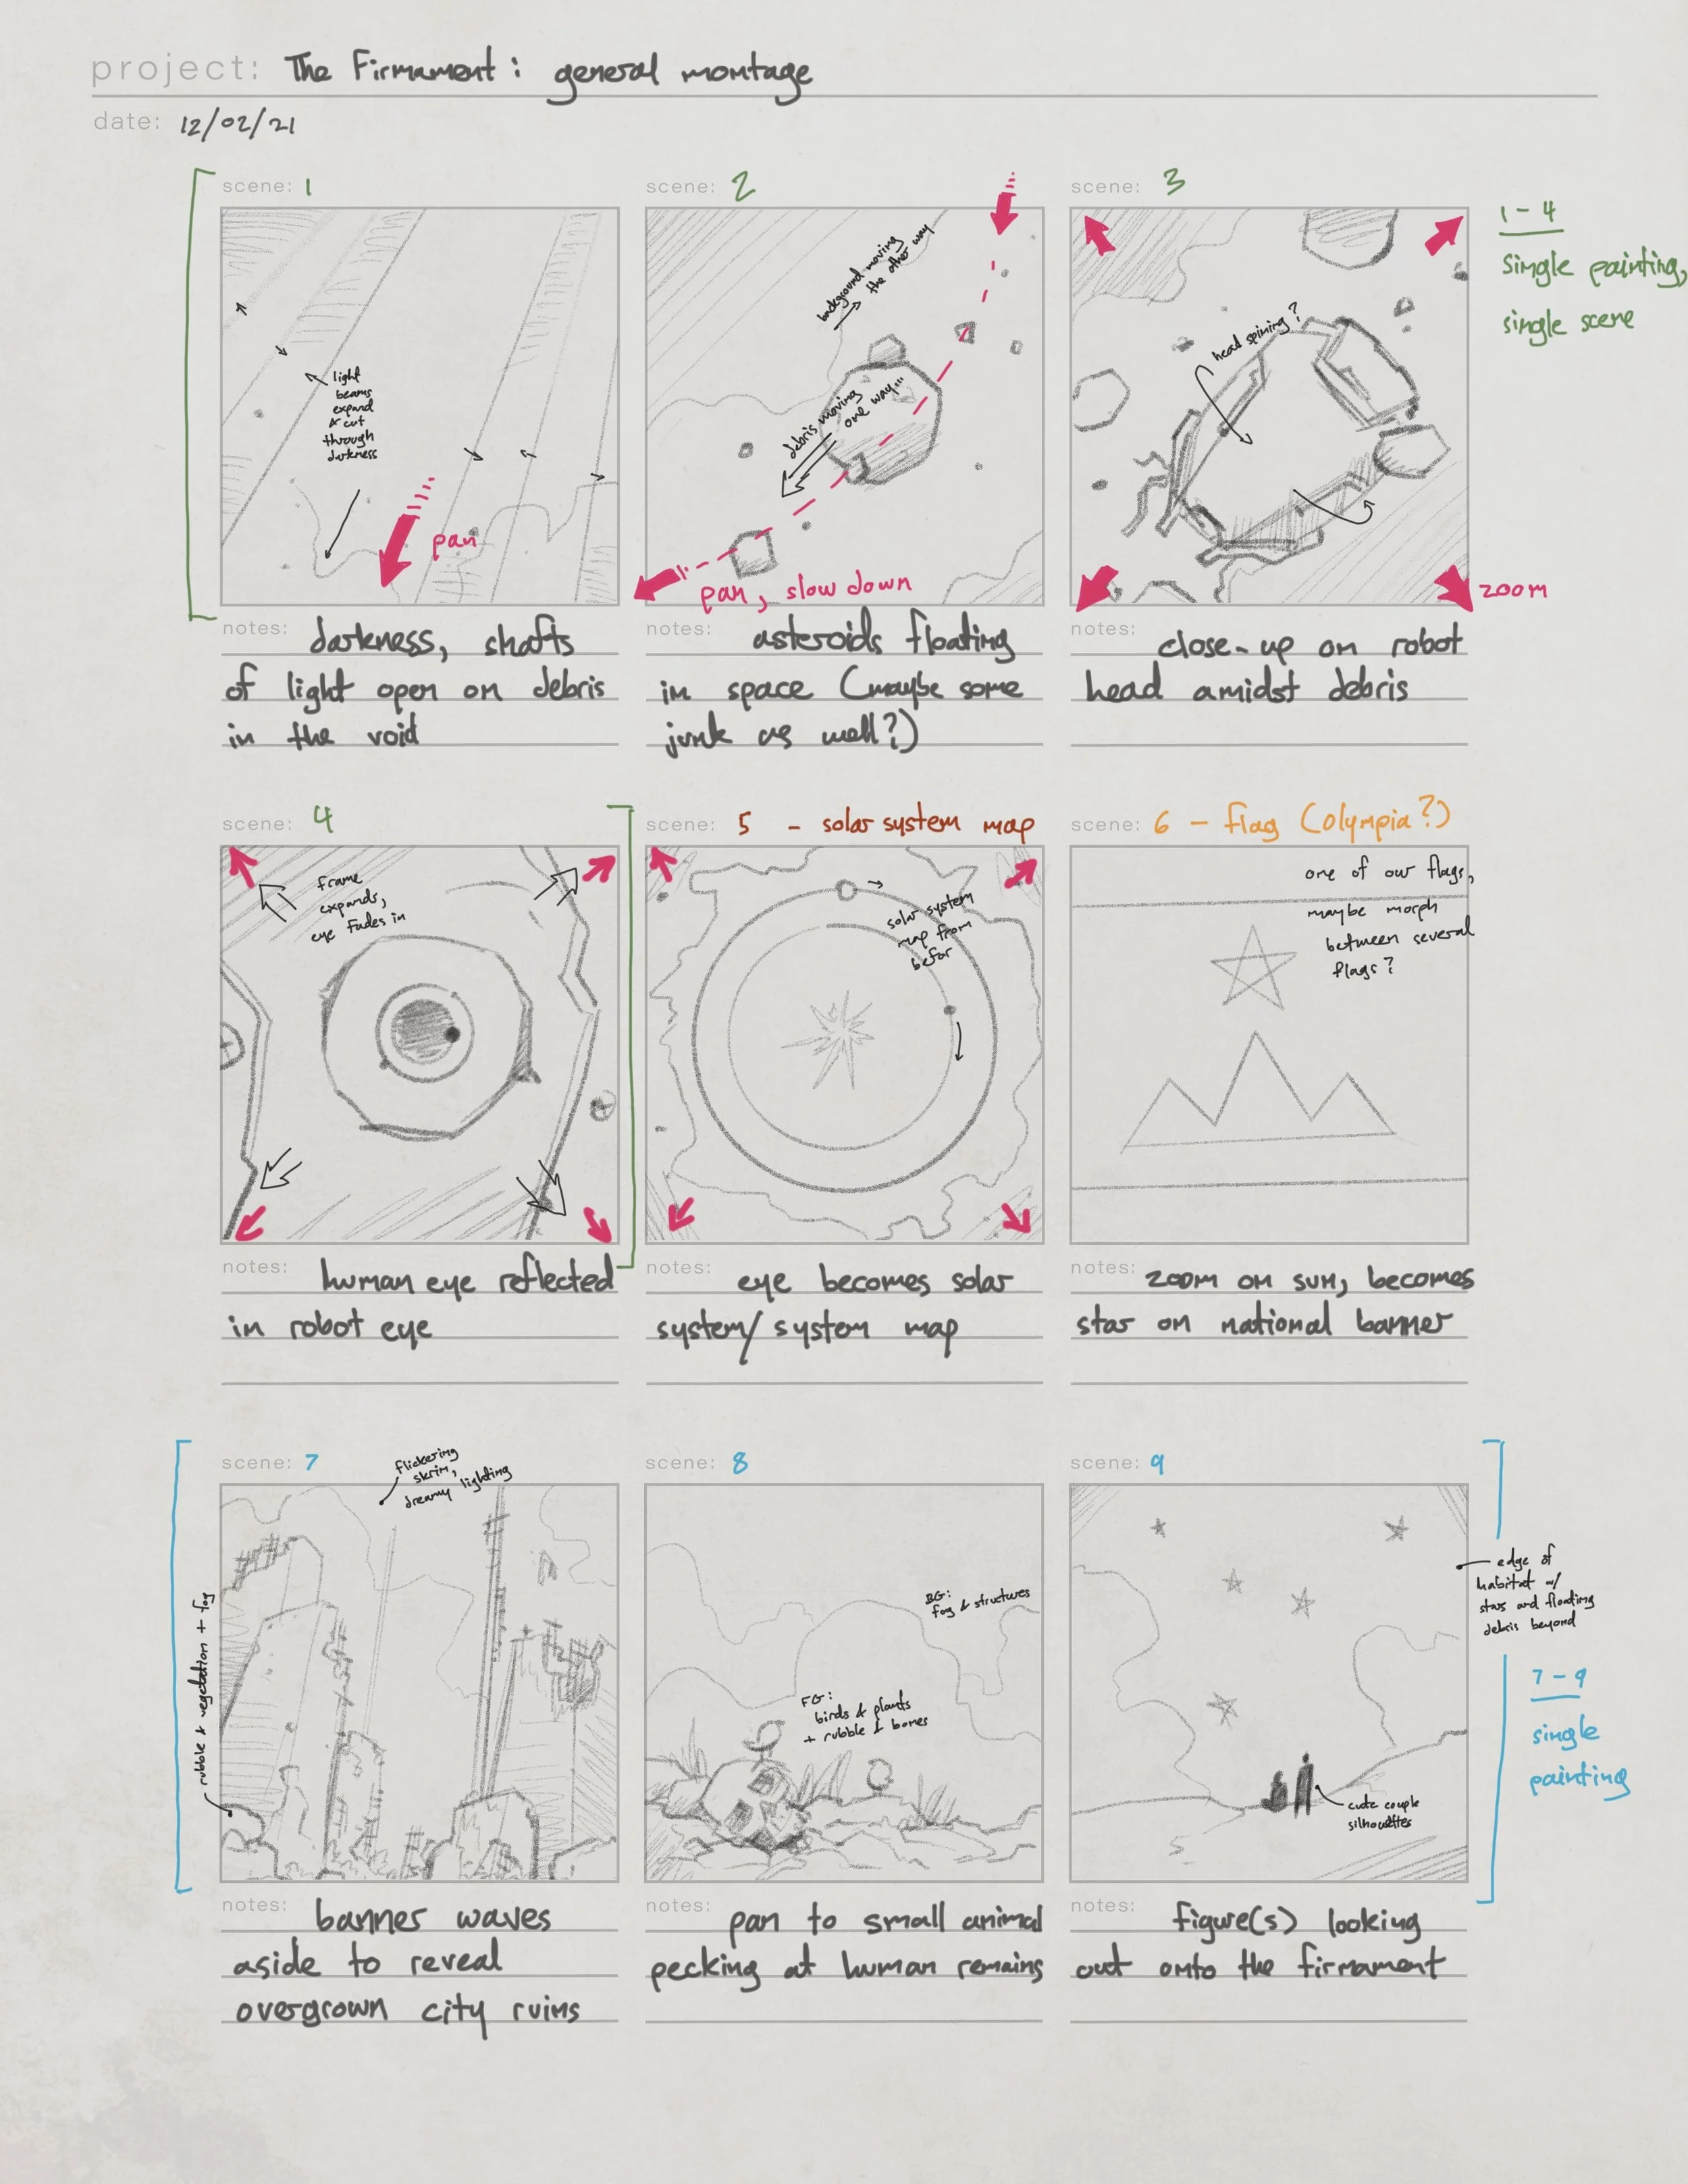 project: The Firmament: general montage
date: 12/02/21
scene: 1
light
beams
expand
& cut
through
darkness
pan
notes: darkness, shafts
of light open on debris
in the void
scene: 2
background moving
the other way
debris moving
one way...
pan, slow down
notes: asteroids floating
in space (maybe some
junk as well?)
scene: 3
head spining?
zoom
notes: close-up on robot
head amidst debris
1-4
single painting,
single scene
scene: 4
frame
expands,
eye fades in
notes: human eye reflected
in robot eye
scene: 5 - solar system map
solar system
map from
befor
notes: eye becomes solar
system/system map
scene: 6 - flag (Olympia?)
one of our flags,
maybe morph
between several
flags?
notes: zoom on sun, becomes
star on national banner
scene: 7
flickering
skrim,
dreamy lighting
rubble & vegetation + fog
notes: banner waves
aside to reveal
overgrown city ruins
scene: 8
BG:
fog & structures
FG:
birds & plants
+ rubble & bones
notes: pan to small animal
pecking at human remains
scene: 9
edge of
habitat w/
stars and floating
debris beyond
cute couple
silhouettes
notes: figure(s) looking
out onto the firmament
7-9
single
painting